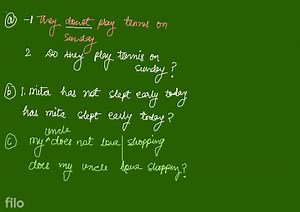 (a) -1 They donot play tennis on
Sunday
2 Do they play tennis on
Sunday?
(b) 1. mita has not slept early today
has mita slept early today?
uncle
(c) my ^ does not love shopping
does my uncle love shopping?
filo